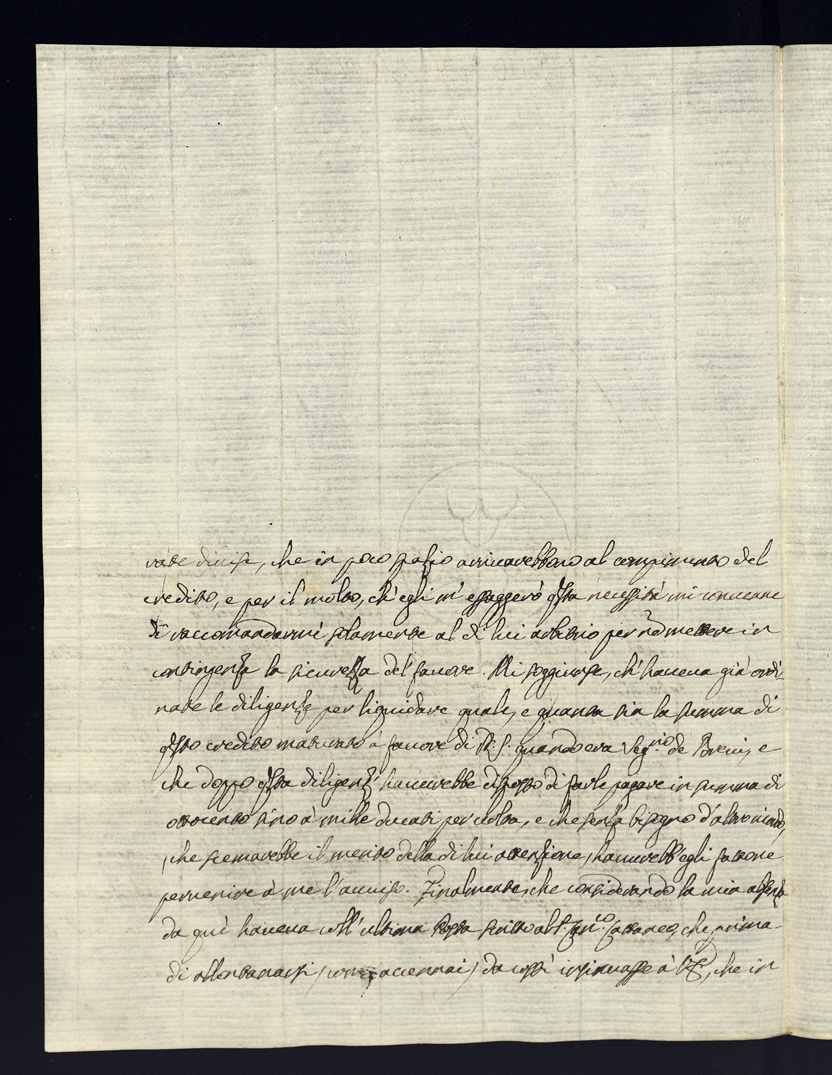 rate divise, che in poco spazio arrivarebbono al compimento del
credito, e per il molto, ch'egli m'essaggerò q̃sta necessità mi convenne
di raccomandarmi solamente al di lui arbitrio per nõ mettere in
contingenza la sicurezza del favore. Mi soggiunse, ch'haueua già ordi-
nate le diligenze per liquidare quale, e quanta sia la summa di
q̃sto credito maturato à favore di quando era Seg.rio de Brevi, e
che doppo q̃sta diligenza hauerebbe disposto di farle pagare in summa di
ottocento sino à mille ducati per volta, e che senza bisogno d'altro
che scemarebbe il merito della di lui attenzione, hauerebb'egli fattone
pervenire à me l'avviso. Finalmente, che considerando la mia assenza
da quì haueva coll'ultima Posta scritto al Cattaneo, che prima
di allontanarsi (come accennai) da costì insinuasse à che in